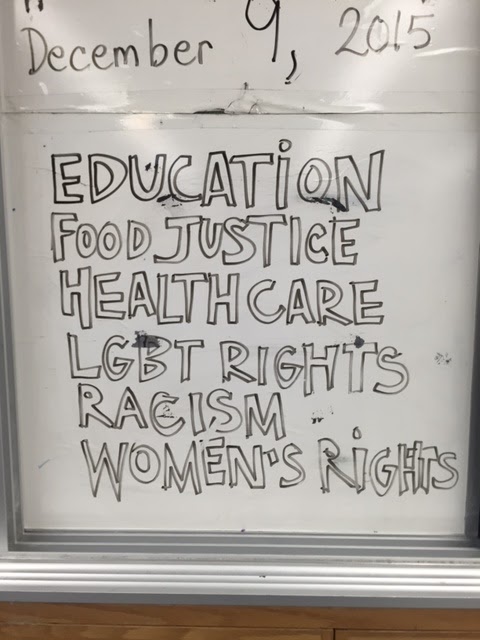 December 9, 2015
EDUCATiON
FOOD JUSTiCE
HEALTH CARE
LGBT RIGHTS
RACISM
WOMEN'S RiGHTS